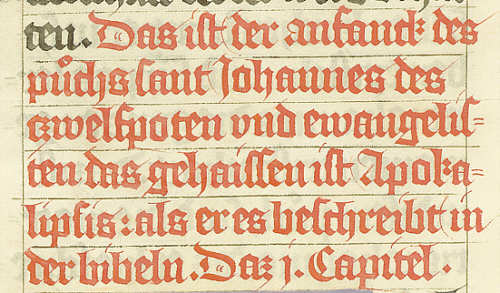 ten. Das ist der anfanck des
půchs sant Johannes des
czwelfpoten vnd ewangelis-
ten das gehaissen ist Apoka-
lipsis: als er es beschreibt in
der bibeln. Daz j. Capitel.